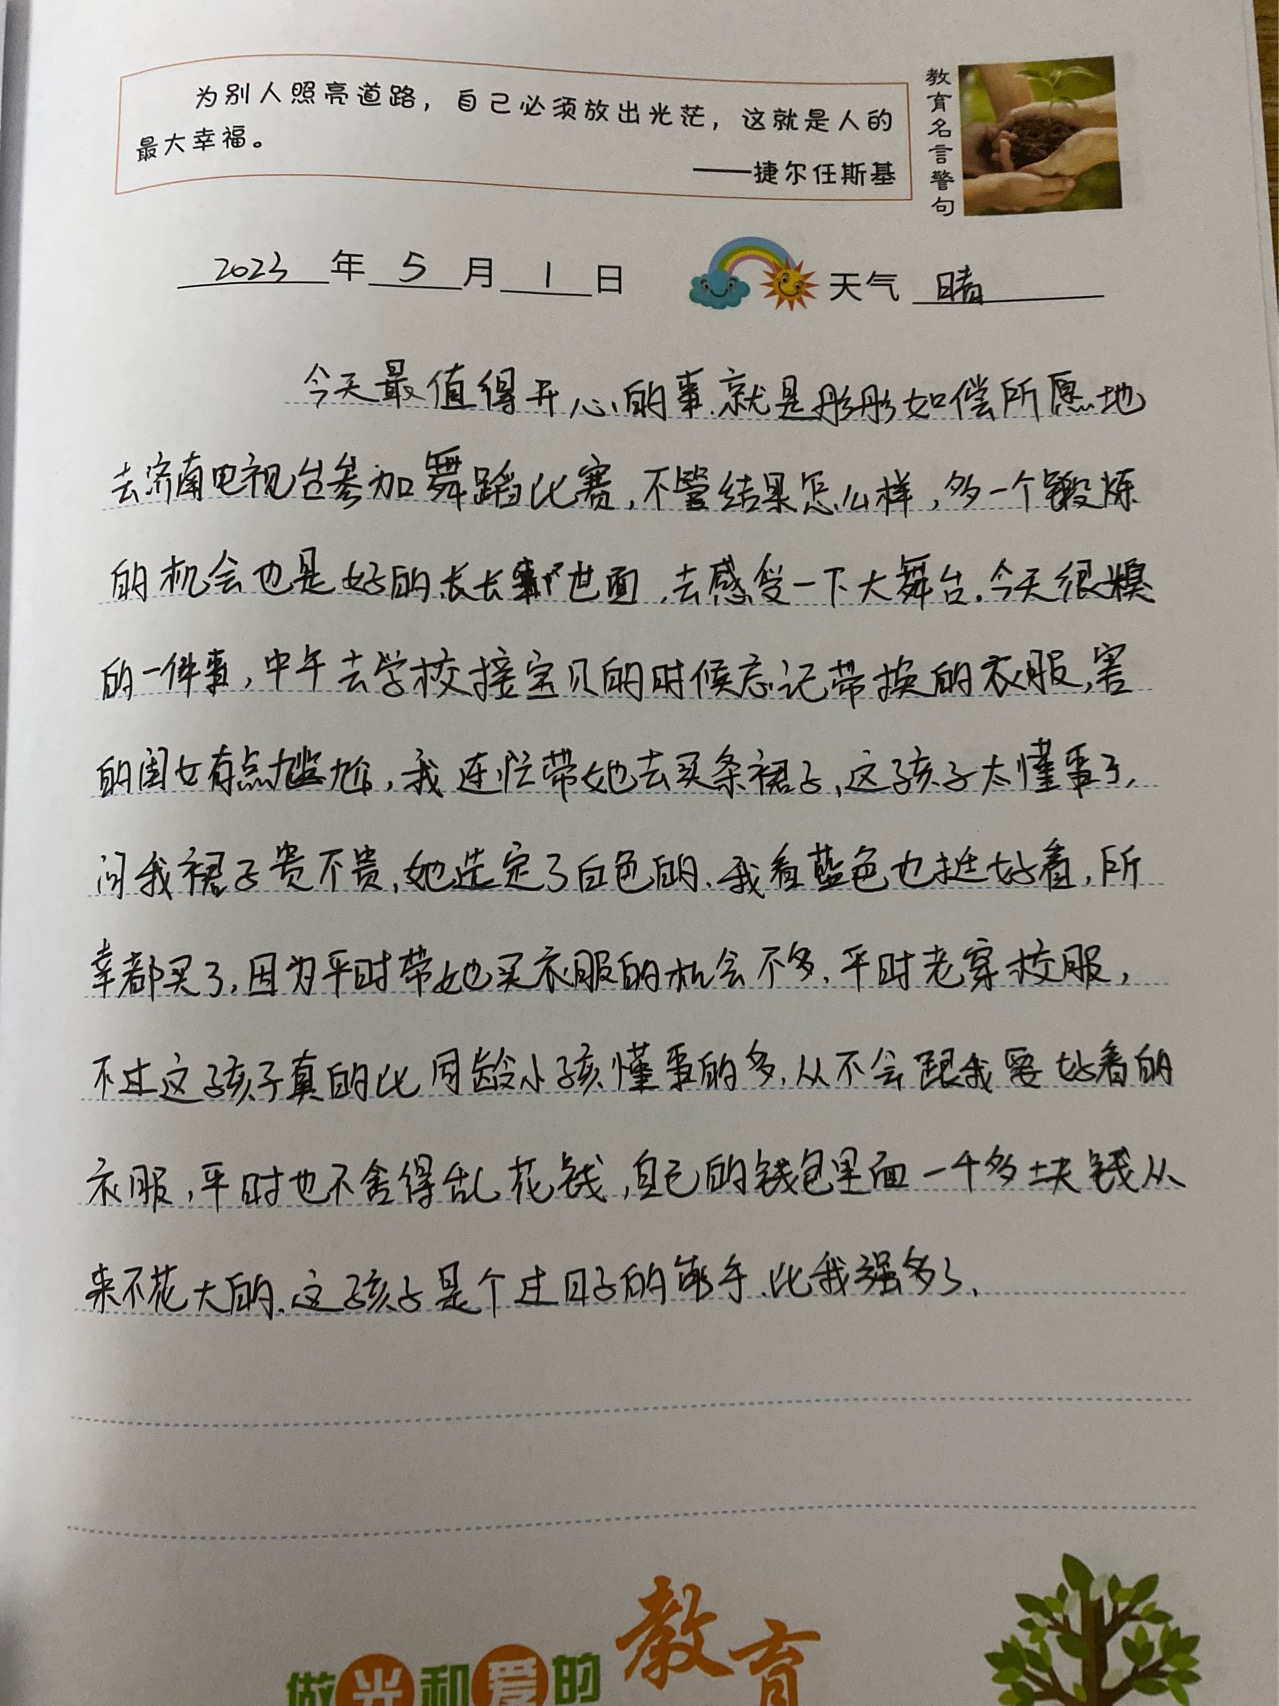 为别人照亮道路，自己必须放出光茫，这就是人的
最大幸福。
——捷尔任斯基
教育名言警句
2023 年 5 月 1 日 天气 晴
今天最值得开心的事.就是彤彤如偿所愿地
去济南电视台参加舞蹈比赛,不管结果怎么样,多一个锻炼
的机会也是好的.长长世面.去感受一下大舞台.今天很糗
的一件事,中午去学校接宝贝的时候忘记带换的衣服,害
的闺女有点尴尬,我连忙带她去买条裙子,这孩子太懂事了,
问我裙子贵不贵,她选定了白色的.我看蓝色也挺好看,所
幸都买了,因为平时带她买衣服的机会不多.平时老穿校服,
不过这孩子真的比同龄小孩懂事的多.从不会跟我要好看的
衣服,平时也不舍得乱花钱,自己的钱包里面一千多块钱从
来不花大的.这孩子是个过日子的能手.比我强多了.
做光和爱的教育